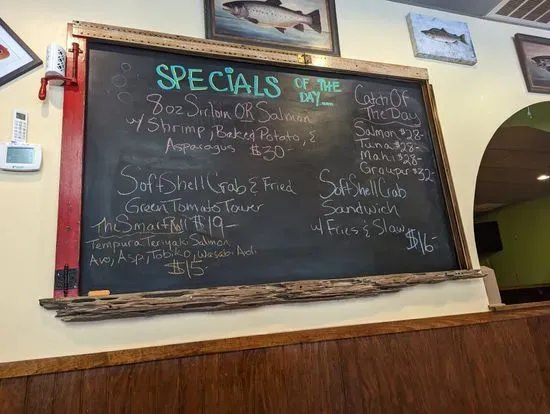 SPECIALS OF THE DAY....
8oz Sirloin OR Salmon
w/ Shrimp, Baked Potato, &
Asparagus $30-
Catch Of
The Day
Salmon $28-
Tuna $28-
Mahi $28-
Grouper $32-
Soft Shell Crab & Fried
Green Tomato Tower
$19-
The Smart Roll
Tempura Teriyaki Salmon
Avo, Asp, Tobiko, Wasabi Aoli
$15-
Soft Shell Crab
Sandwich
w/ Fries & Slaw
$16-